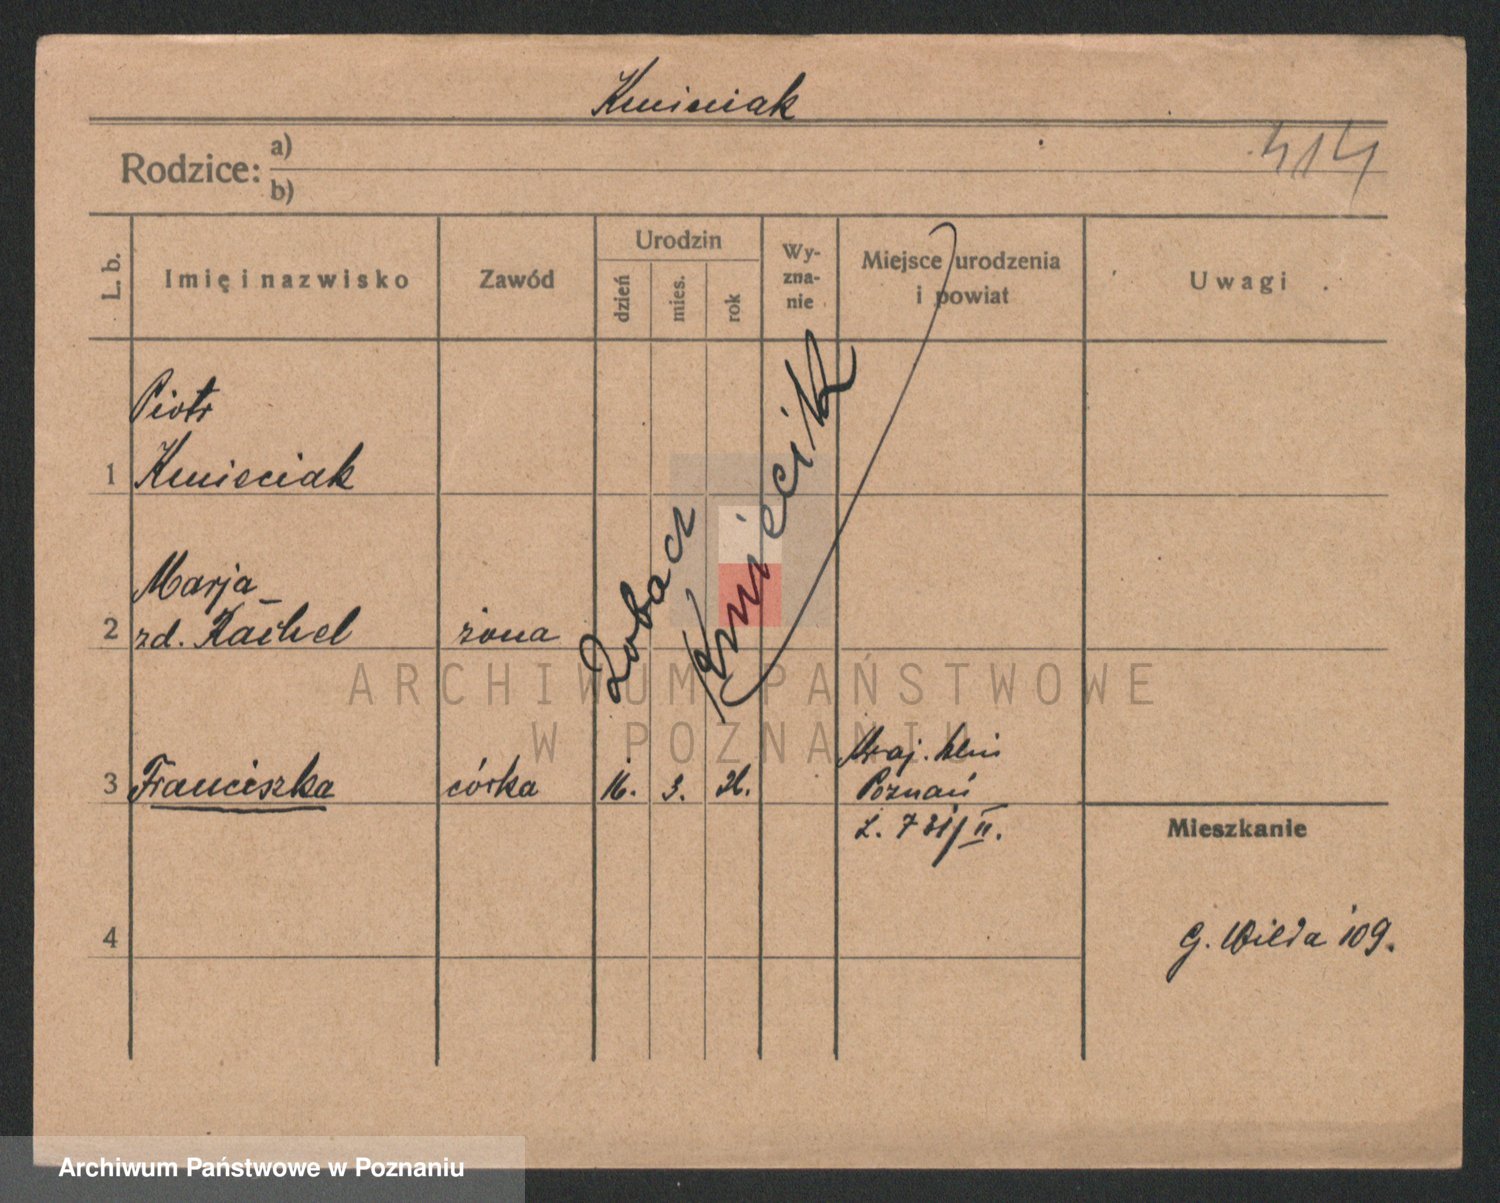 Kmieciak
414
Rodzice: a)
b)
L. b.
Imię i nazwisko
Zawód
Urodzin
dzień
mies.
rok
Wy-
zna-
nie
Miejsce urodzenia
i powiat
Uwagi
Piotr
1 Kmieciak
Marja
2 zd. Kachel żona
Zobacz
Kmiecik
3 Franciszka córka 16. 3. 21.
Poznań
L. 731/II.
Mieszkanie
4
G. Wilda 109.
ARCHIWUM PAŃSTWOWE
W POZNANIU
Archiwum Państwowe w Poznaniu